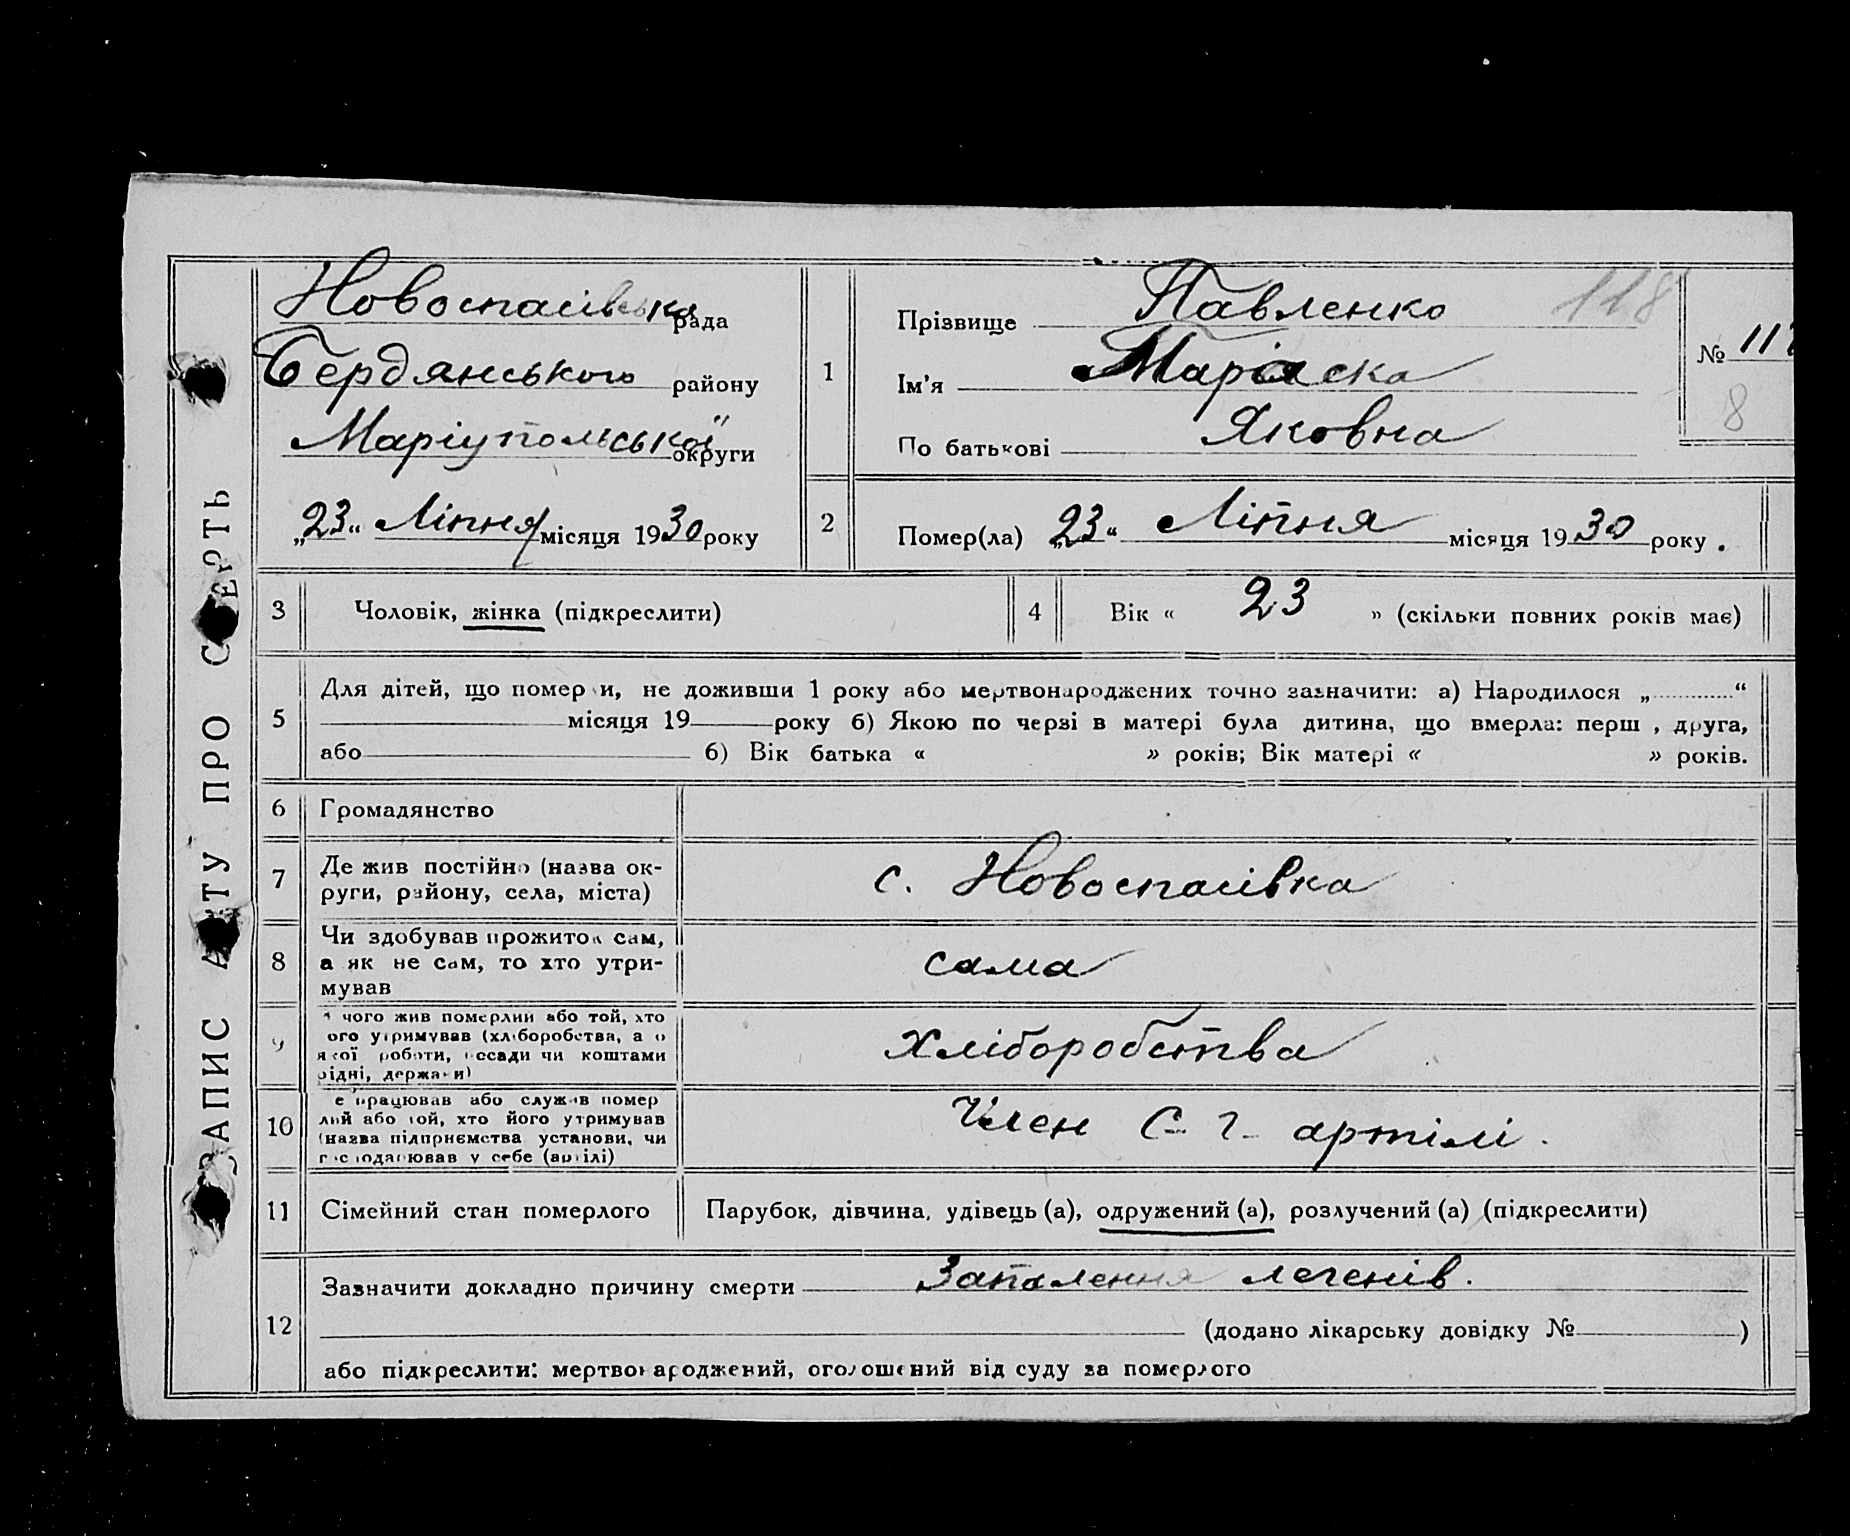 ЗАПИС АКТУ ПРО СМЕРТЬ
Новоспасівська рада
Бердянського району
Маріупольської округи
„23“ Ліпня місяця 1930 року
1
Прізвище Павленко
118
Ім'я
По батькові Яковна
№
8
2
Помер(ла) „23“ Ліпня місяця 1930 року.
3 Чоловік, жінка (підкреслити)
4 Вік « 23 » (скільки повних років має)
5
Для дітей, що померли, не доживши 1 року або мертвонароджених точно зазначити: а) Народилося „ “
місяця 19 року б) Якою по черзі в матері була дитина, що вмерла: перш , друга,
або б) Вік батька « » років; Вік матері « » років.
6 Громадянство
7
Де жив постійно (назва ок-
руги, району, села, міста)
с. Новоспасівка
8
Чи здобував прожиток сам,
а як не сам, то хто утри-
мував
сама
9
чого жив померлий або той, хто
ого утримував (хліборобства, а о
якої роботи, посади чи коштами
рідні, держави)
хліборобства
10
е працював або служив помер
лий або той, хто його утримував
(назва підприємства установи, чи
господарював у себе (артілі)
Член С. г. артілі.
11 Сімейний стан померлого
Парубок, дівчина, удівець (а), одружений (а), розлучений (а) (підкреслити)
12
Зазначити докладно причину смерти Запалення легенів.
(додано лікарську довідку № )
або підкреслити: мертвонароджений, оголошений від суду за померлого